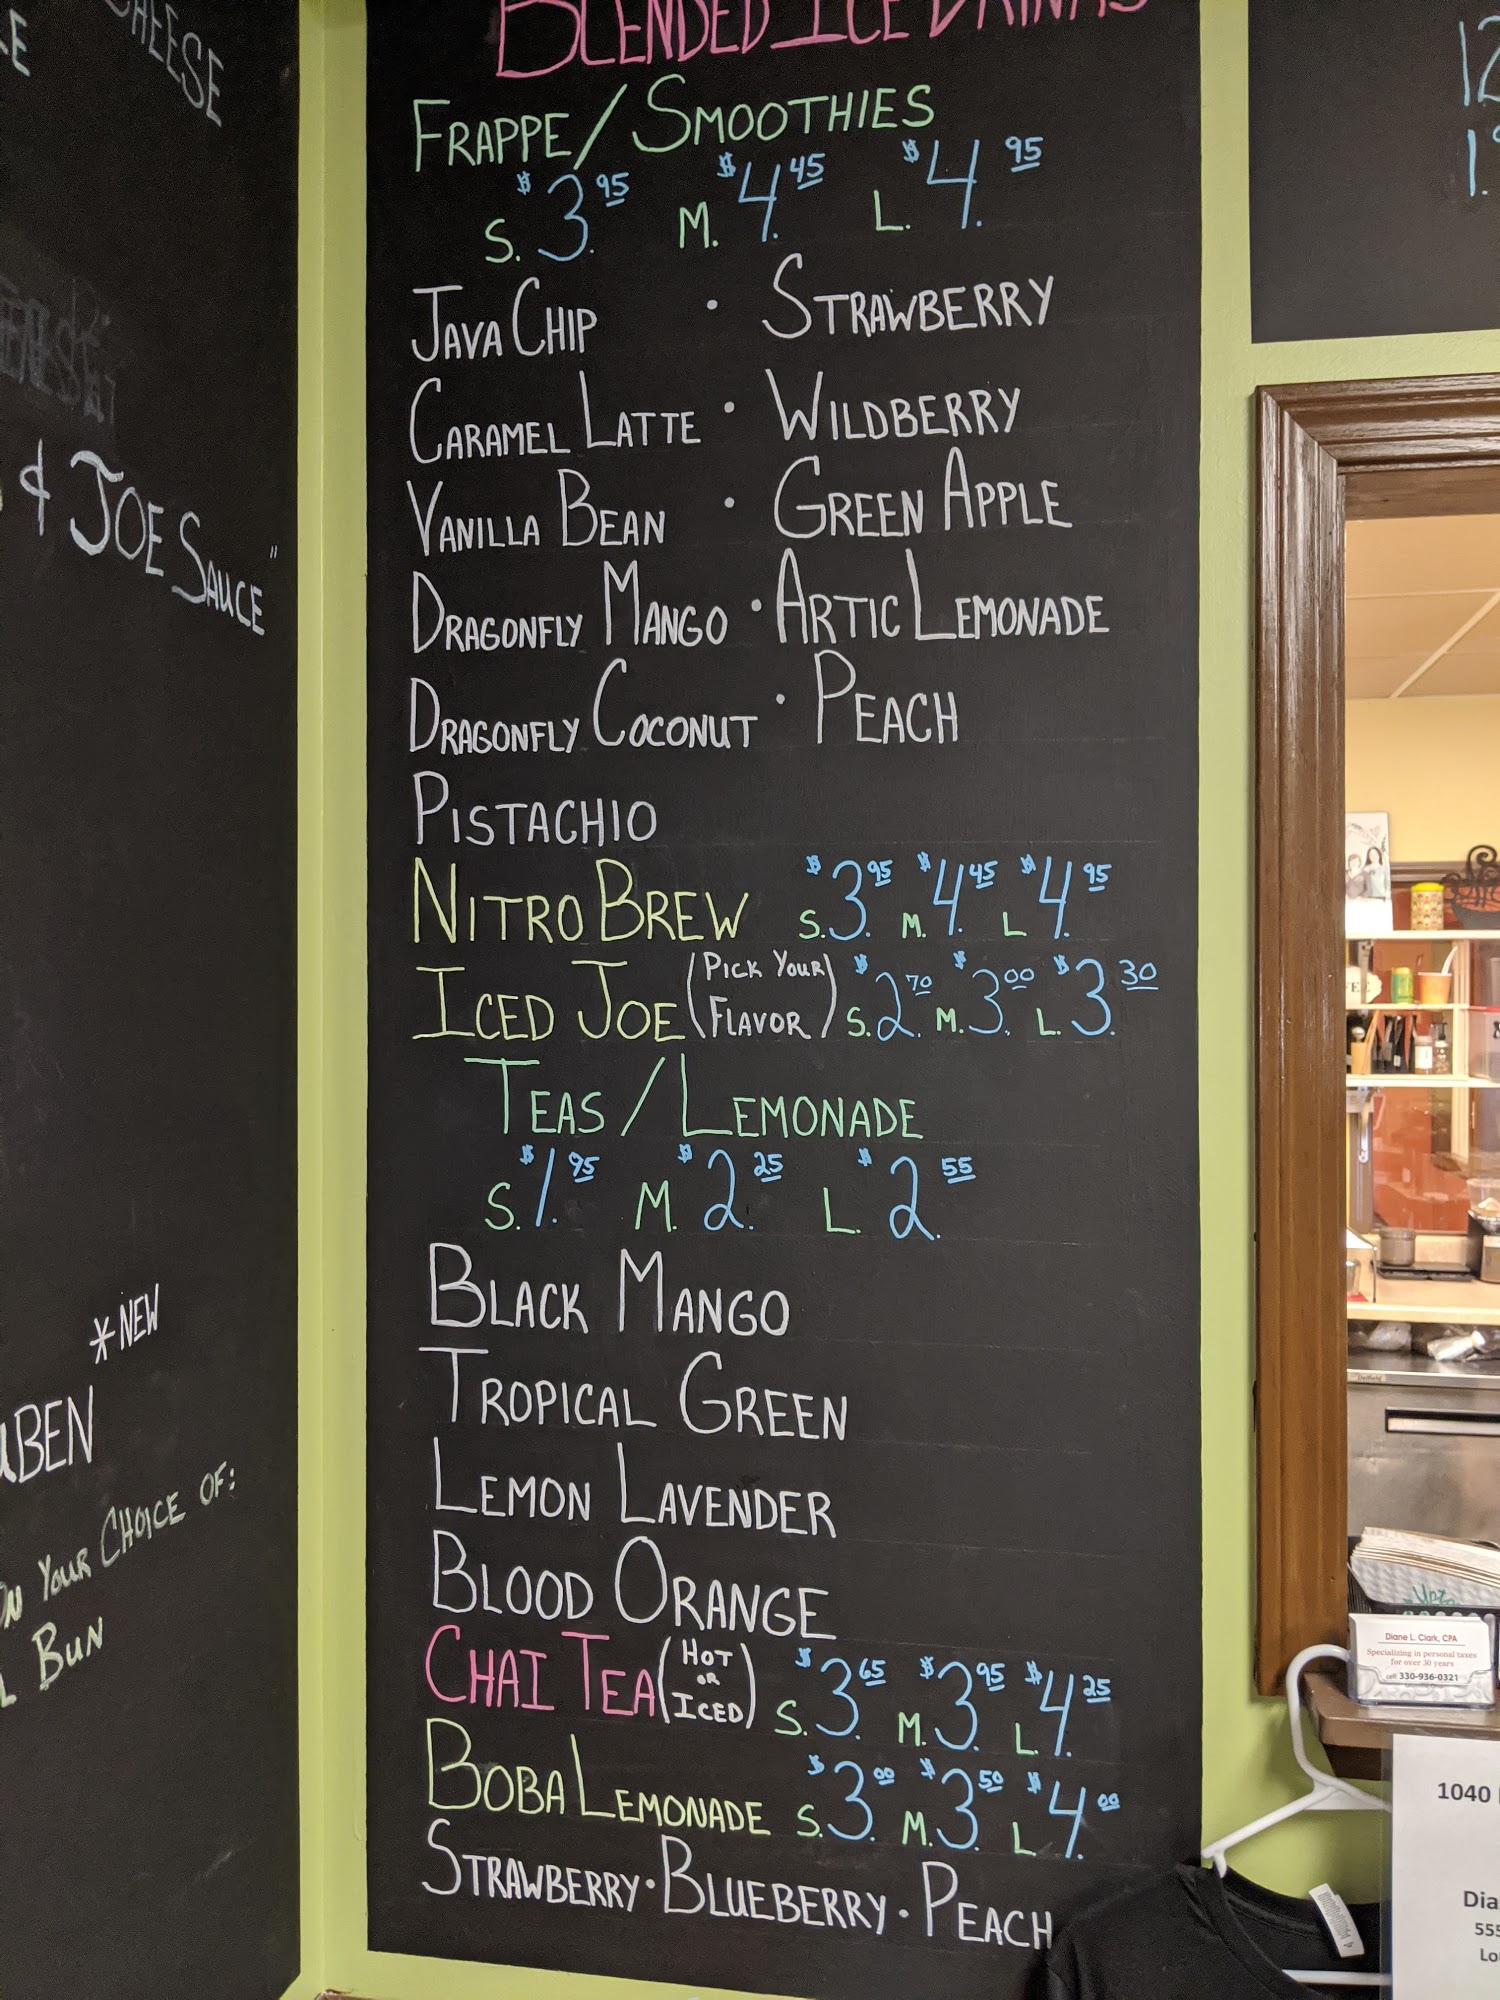 CHEESE
& JOE SAUCE"
*NEW
YOUR CHOICE OF:
BUN
BLENDED ICE DRINKS
FRAPPE/SMOOTHIES
S. $3.95 M. $4.45 L. $4.95
JAVA CHIP · STRAWBERRY
CARAMEL LATTE · WILDBERRY
VANILLA BEAN · GREEN APPLE
DRAGONFLY MANGO · ARTIC LEMONADE
DRAGONFLY COCONUT · PEACH
PISTACHIO
NITRO BREW S. $3.95 M. $4.45 L $4.95
ICED JOE (PICK YOUR FLAVOR) S. $2.70 M. $3.00 L. $3.30
TEAS/LEMONADE
S. $1.95 M. $2.25 L. $2.55
BLACK MANGO
TROPICAL GREEN
LEMON LAVENDER
BLOOD ORANGE
CHAI TEA (HOT OR ICED) S. $3.65 M. $3.95 L. $4.25
BOBA LEMONADE S. $3.00 M. $3.50 L $4.00
STRAWBERRY · BLUEBERRY · PEACH
Diane L. Clark, CPA
Specializing in personal taxes
for over 30 years
cell 330-936-0321
1040
Dia
555
Lo